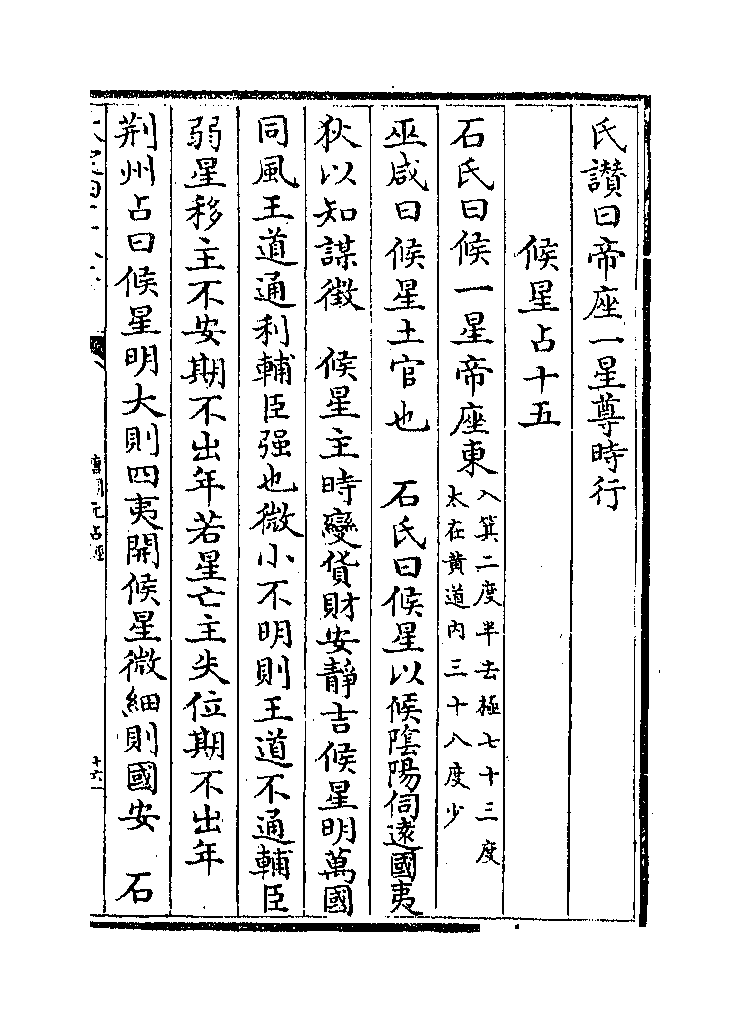 氏讃曰帝座一星尊時行
候星占十五
石氏曰候一星帝座東入箕二度半去極七十三度太在黄道内三十八度少
巫咸曰候星土官也　石氏曰候星以候隂陽伺遠國夷
狄以知謀徴　候星主時變貨財安靜吉候星明萬國
同風王道通利輔臣强也微小不明則王道不通輔臣
弱星移主不安期不出年若星亡主失位期不出年
荆州占曰候星明大則四夷開候星微細則國安　石
唐開元占經